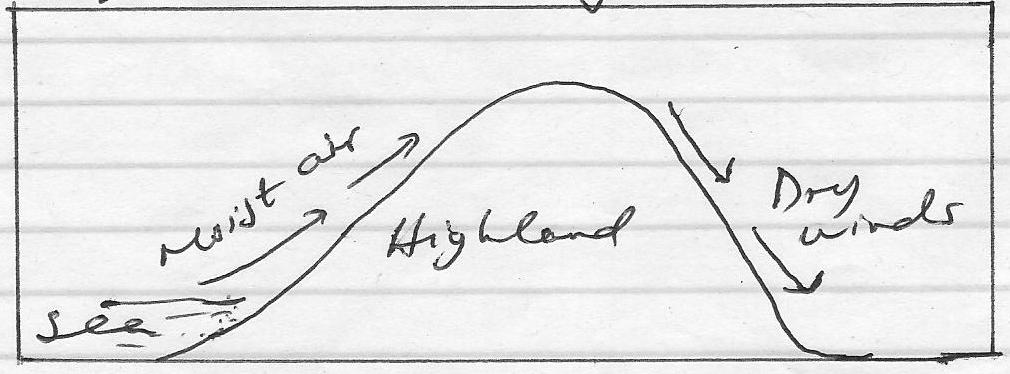 Moist air
Highland
Dry
winds
sea